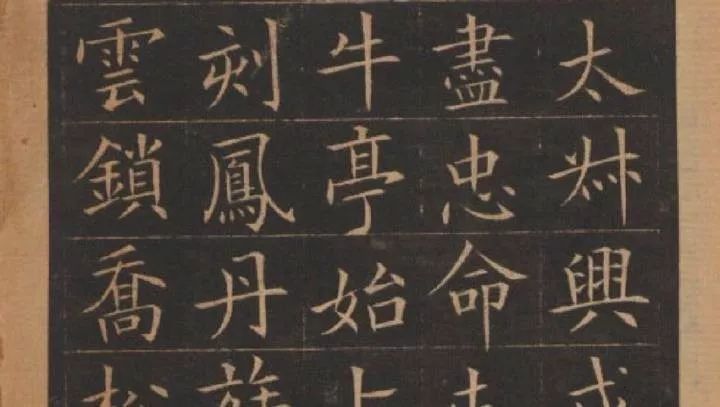 太興
盡忠命
牛亭始上
刻鳳丹
雲鎖喬松